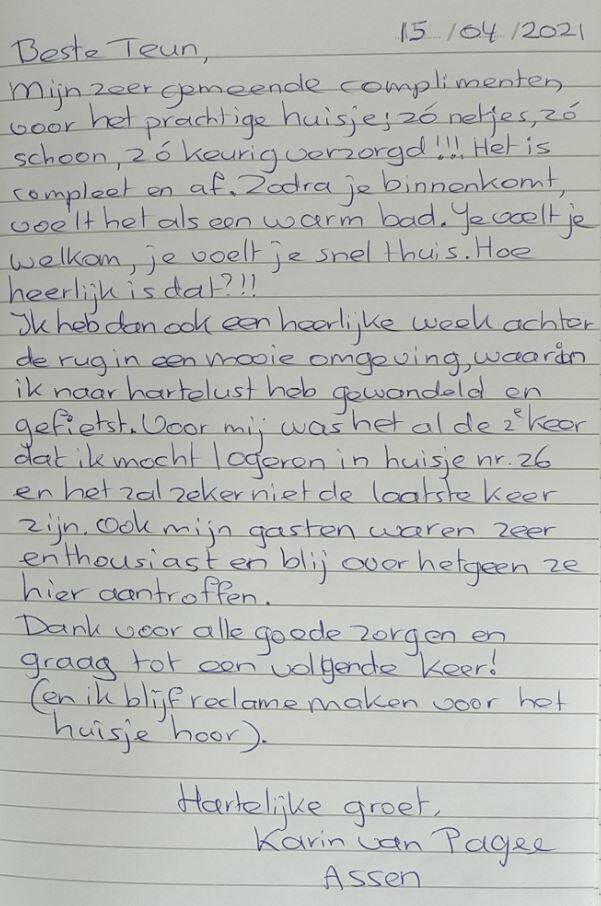 15/04/2021
Beste Teun,
Mijn zeer gemeende complimenten
voor het prachtige huisje; zó netjes, zó
schoon, zó keurig verzorgd!!! Het is
compleet en af. Zodra je binnenkomt,
voelt het als een warm bad. Je voelt je
welkom, je voelt je snel thuis. Hoe
heerlijk is dat?!!
Ik heb dan ook een heerlijke week achter
de rug in een mooie omgeving, waarin
ik naar hartelust heb gewandeld en
gefietst. Voor mij was het al de 2e keer
dat ik mocht logeren in huisje nr. 26
en het zal zeker niet de laatste keer
zijn. Ook mijn gasten waren zeer
enthousiast en blij over hetgeen ze
hier aantroffen.
Dank voor alle goede zorgen en
graag tot een volgende keer!
(en ik blijf reclame maken voor het
huisje hoor).
Hartelijke groet,
Karin van Pagee
Assen